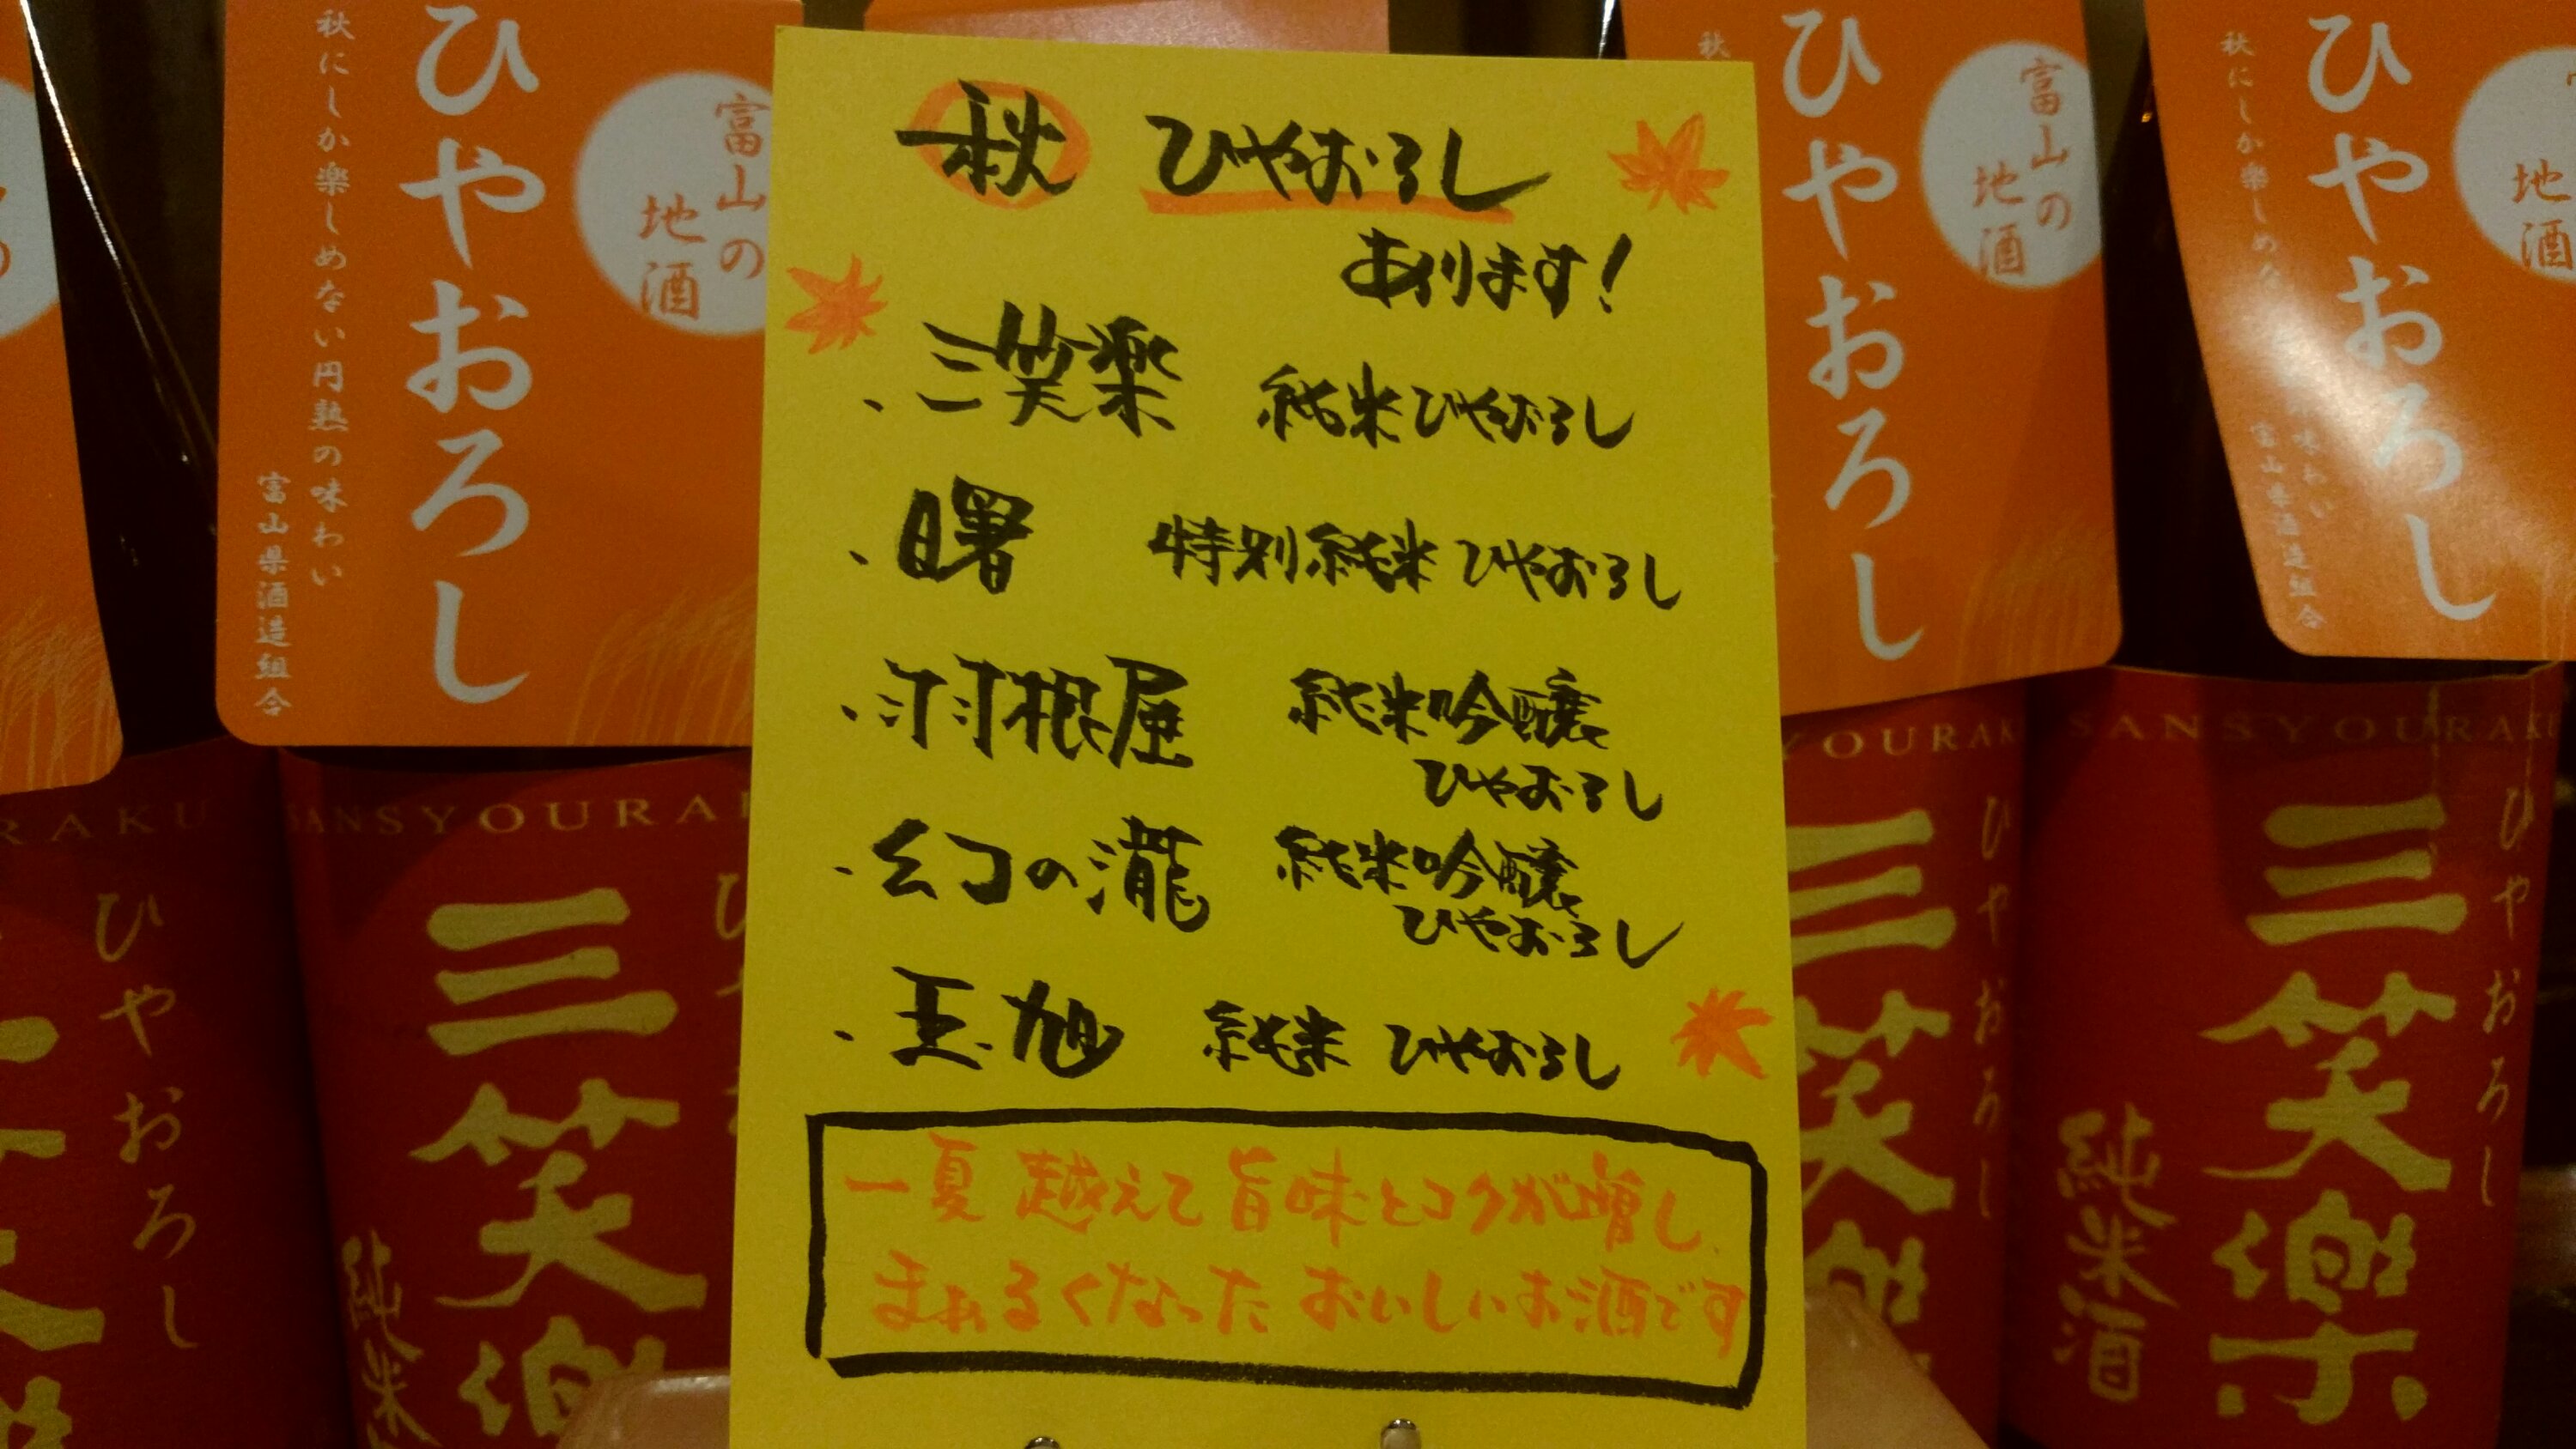 秋 ひやおろし
あります!
・三笑楽 純米ひやおろし
・曙 特別純米 ひやおろし
・羽根屋 純米吟醸
ひやおろし
・幻の瀧 純米吟醸
ひやおろし
・玉旭 純米 ひやおろし
一夏 越えて 旨味とコクが増し、
まぁるくなった おいしいお酒です
ひやおろし
秋にしか楽しめない円熟の味わい
富山県酒造組合
富山の
地酒
SANSYOURA
三笑楽
純米
RAKU
ひやおろし
ひやおろし
富山の
地酒
秋
YOURAK
三笑楽
ひやおろし
ひやおろし
秋にしか楽しめな
味わい
富山県酒造組合
地酒
SANSYOURAK
三笑楽
ひやおろし
純米酒